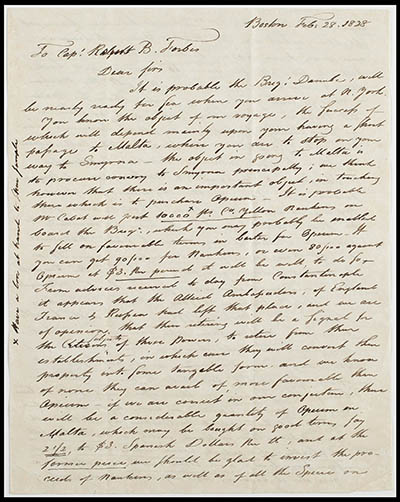 Boston Feb. 28. 1828
To Capt. Robert B. Forbes
Dear Sir,
It is probable the Brig. Danube, will
be nearly ready for sea when you arrive at N. York.
You know the object of our voyage, the success of
which will depend mainly upon your having a short
passage to Malta, where you are to stop on your
way to Smyrna — the object in going to Malta is
to procure convoy to Smyrna principally; we think
however that there is an important object, in touching
there which is to purchase Opium — It is probable
Mr Cabot will put 10000 × Co. Yellow Nankins on
board the Brig., which you may probably be enabled
to sell on favourable terms in barter for Opium. If
you can get 90/100 for Nankins, or even 80/100 against
Opium at $3. per pound it will be well to do so —
From advices received to day from Constantinople
it appears that the Allied Ambassadors, of England
France & Russia had left that place, and we are
of opinion, that their retiring will be a Signal for
the subjects of those Powers, to retire from their
establishments, in which case they will convert their
property into some tangible form and we know
of none they can avail of more favourable than
Opium — if we are correct in our conjecture, there
will be a considerable quantity of Opium in
Malta, which may be bought on good terms, say
2 1/2 to $3. Spanish Dollars per lb, and at the
former price, we should be glad to invest the pro-
ceeds of Nankins, as well as of all the Specie on
× Have a love at hand &